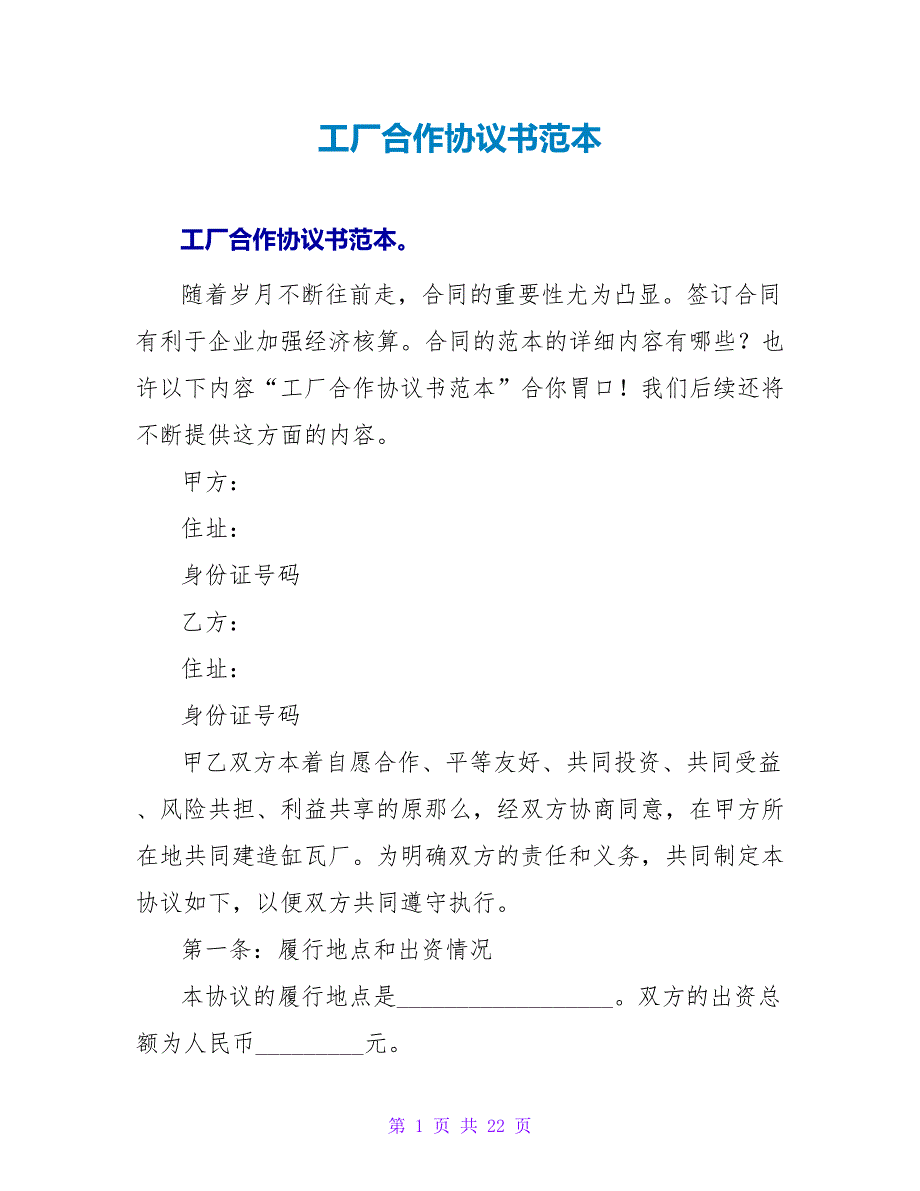 工厂合作协议书范本
工厂合作协议书范本。
随着岁月不断往前走，合同的重要性尤为凸显。签订合同
有利于企业加强经济核算。合同的范本的详细内容有哪些？也
许以下内容“工厂合作协议书范本”合你胃口！我们后续还将
不断提供这方面的内容。
甲方：
住址：
身份证号码
乙方：
住址：
身份证号码
甲乙双方本着自愿合作、平等友好、共同投资、共同受益
、风险共担、利益共享的原那么，经双方协商同意，在甲方所
在地共同建造缸瓦厂。为明确双方的责任和义务，共同制定本
协议如下，以便双方共同遵守执行。
第一条：履行地点和出资情况
本协议的履行地点是__________________。双方的出资总
额为人民币_________元。
第 1 页 共 22 页